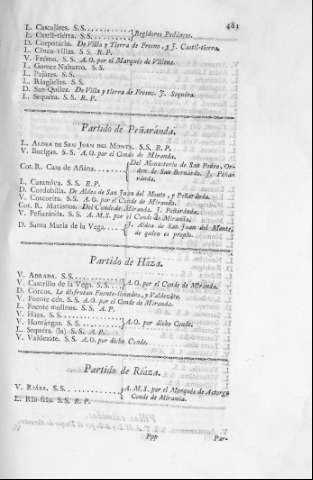 481
L. Cascajares. S.S.
L. Castil-tierra. S.S. } Regidores Pedáneos.
D. Corporario. De Villa y Tierra de Fresno, y J. Castil-tierra.
L. Cinco-villas S.S. R.P.
V. Fresno. S.S. A.O. por el Marqués de Villena.
L. Gomez Naharro. S.S.
L. Pajares. S.S.
L. Riagüelas. S.S.
D. San-Quilez. De Villa y tierra de Fresno. J. Sequera.
L. Sequera. S.S. R.P.
Partido de Peñaránda.
L. Aldea de San Juan del Monte. S.S. R.P.
V. Bocigas. S.S. A.O. por el Conde de Miranda.
Cot. R. Casa de { Del Monasterio de San Pedro, Or-
den de San Bernardo. J. Peñar
ránda.
L. Casanóva. S.S. R.P.
D. Cordubilla. De Aldea de San Juan del Monte, y Peñaránda.
V. Coscorita. S.S. A.O. por el Conde de Miranda.
Cot. R. Matanzas. Del Conde de Miranda. J. Peñaránda.
V. Peñaránda. S.S. A.M.S. por el Conde de Miranda.
D. Santa María de la Vega. { J. Aldea de San Juan del Monte,
de quien es propio.
Partido de Háza.
V. Adrada. S.S.
V. Castrillo de la Vega. S.S. } A.O. por el Conde de Miranda.
D. Córcos. Le disfrutan Fuente-lisendro, y Valdezáte.
V. Fuente cén. S.S. A.O. por el Conde de Miranda.
L. Fuente molinos. S.S. A.P.
V. Háza. S.S.
V. Hontángas. S.S. } A.O. por dicho Conde.
L. Sequéra. (la). S.S. A.P.
V. Valdezáte. S.S. A.O. por dicho Conde.
Partido de Riáza.
V. Riáza. S.S. { A.M.S. por el Marqués de Astorga
Conde de Miranda.
L. Ria-fria. S.S. R.P.
Ppp
Par-